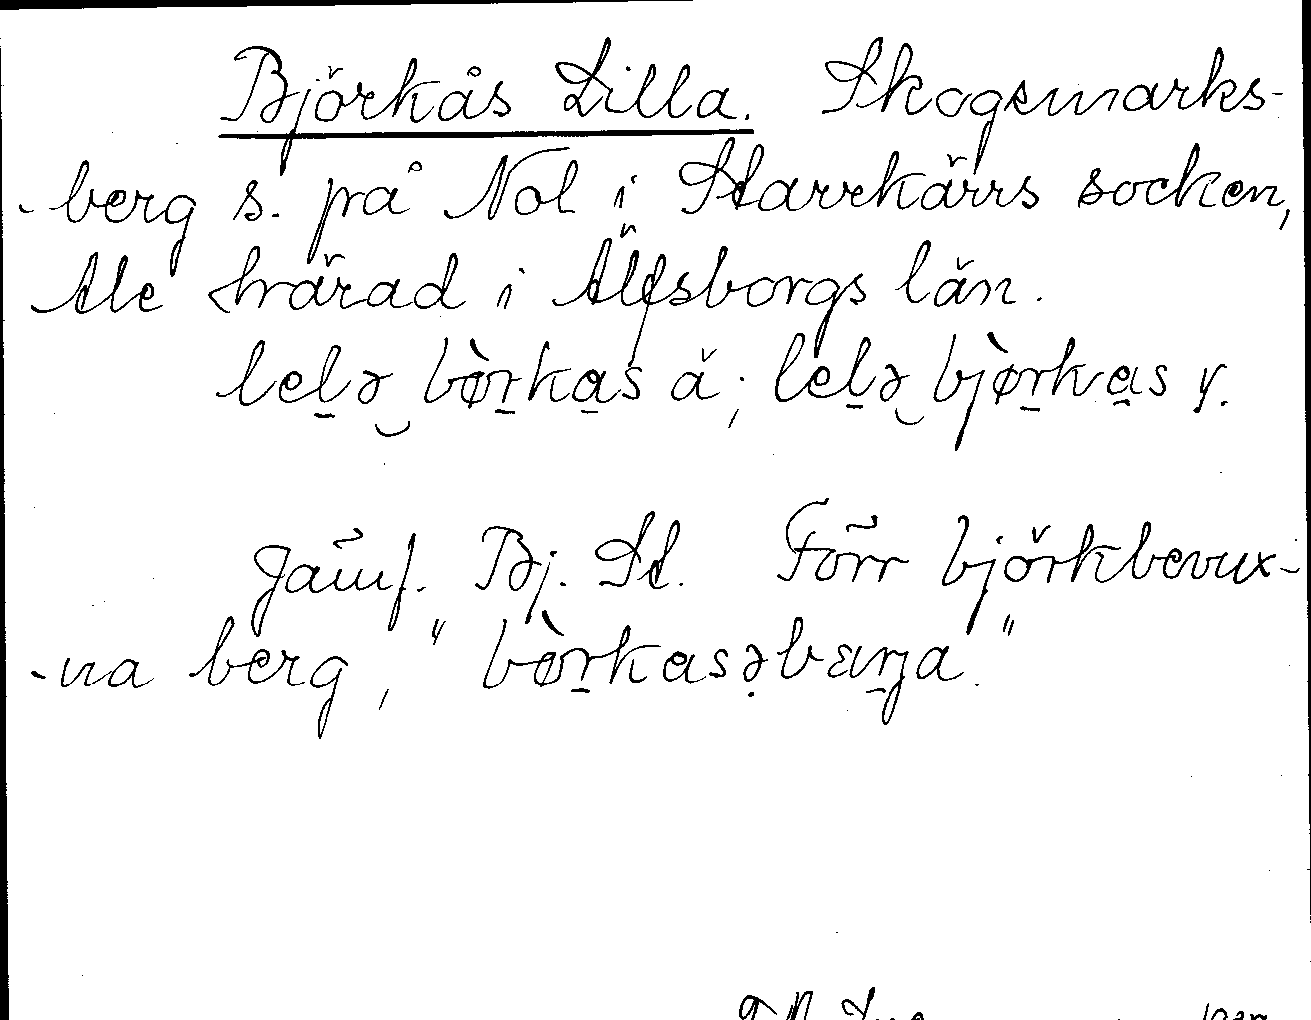 Björkås Lilla. Skogsmarks-
-berg s. på Nol i Starrkärrs socken,
Ale härad i Älfsborgs län.
lelə bø̀rkas ä; lelə bjø̀rkas y.
Jämf. Bj. St. Förr björkbevux-
-na berg, "bø̀rkasəbærja."